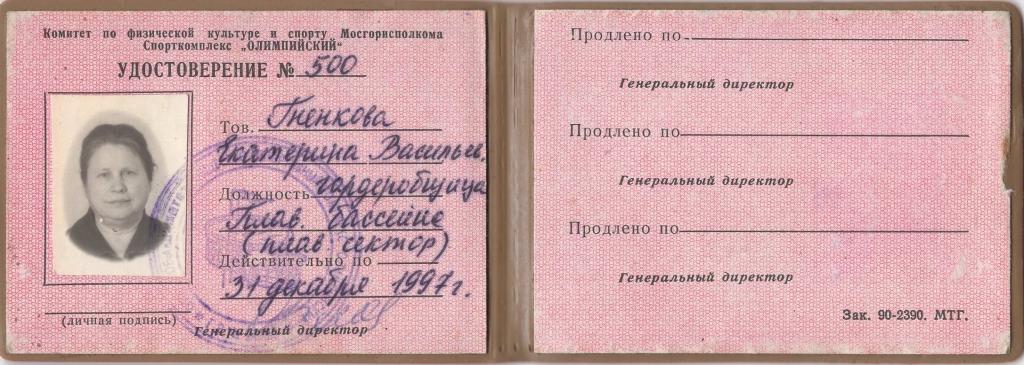 Комитет по физической культуре и спорту Мосгорисполкома
Спорткомплекс „ОЛИМПИЙСКИЙ“
УДОСТОВЕРЕНИЕ № 500
Тов. Гненкова
Екатерина Васильев.
Должность гардеробщица
Плав. бассейне
(плав сектор)
Действительно по
31 декабря 1997 г.
(личная подпись)
Генеральный директор
Продлено по
Генеральный директор
Продлено по
Генеральный директор
Продлено по
Генеральный директор
Зак. 90-2390. МТГ.